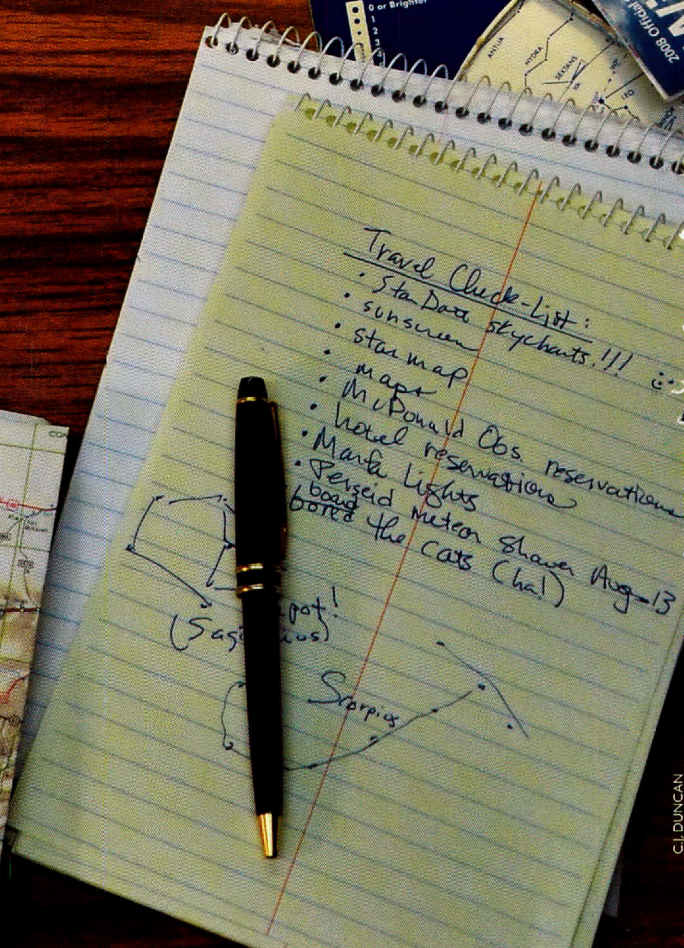 0 or Brighter
1
2
3
4
ANTLIA
HYDRA
SEXTANS
LEO
2008 Official
Travel Check-List:
• StarDate skycharts!!!
• sunscreen
• star map
• maps
• McDonald Obs. reservations
• hotel reservations
• Marfa Lights
• Perseid meteor shower Aug-13
board
bored the cats (ha!)
pot!
(Sag ius)
Scorpius
C.J. DUNCAN